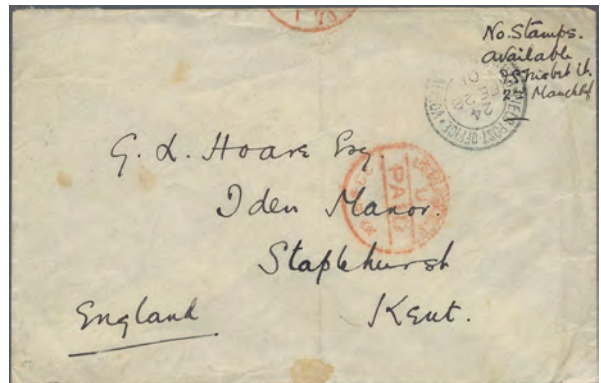 No. Stamps.
available
2nd Manch
FIELD POST-OFFICE
PAID
G. L. Hoare Esq.
Iden Manor.
Staplehurst
Kent.
England